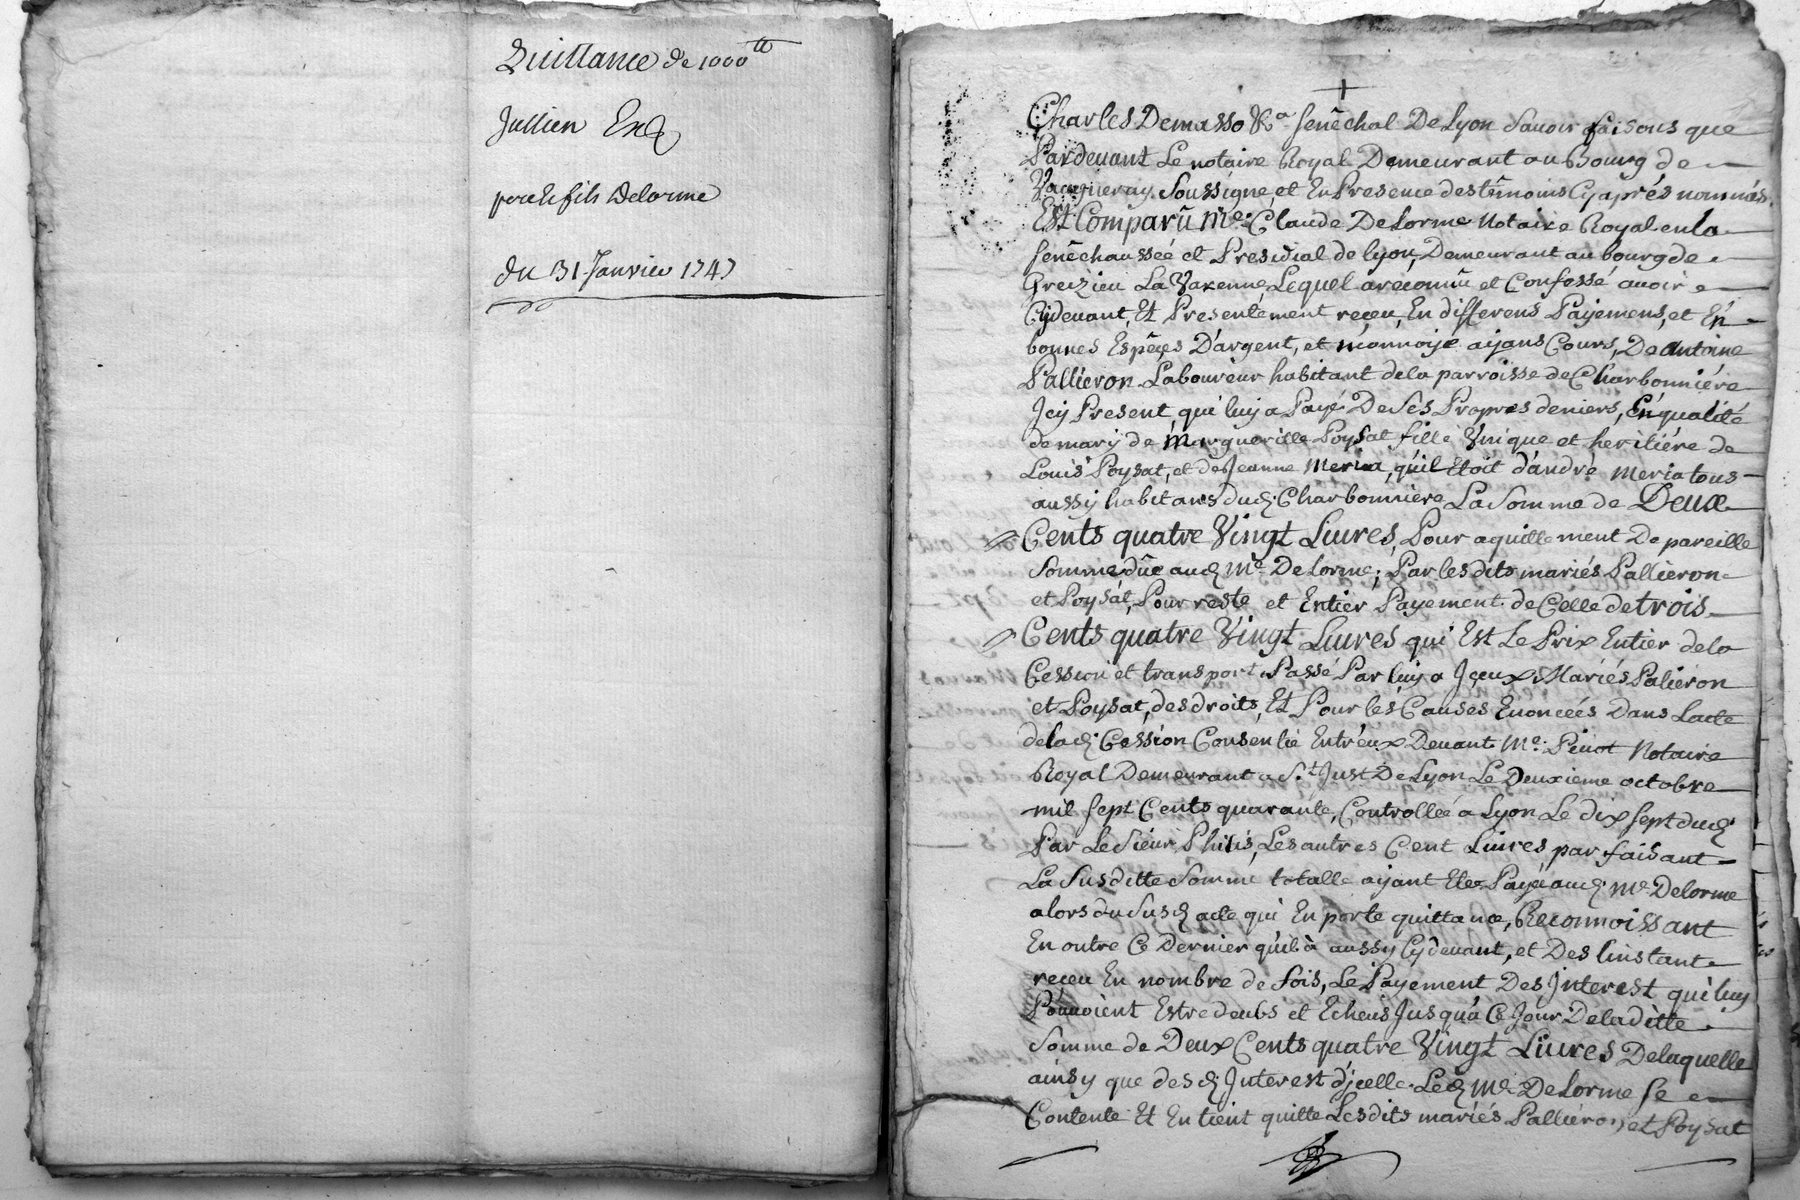 Quittance de 1000ᵗᵗ
Jullien
pour le fils Delorme
du 31 Janvier 1747
Charles Demasso &ᵃ senêchal De Lyon Savoir faisons que
Pardevant Le notaire Royal Demeurant au Bourg de
Vaugneray Soussigne, et En Presence des têmoins Cÿ aprés nommés.
Est Comparû Mᵉ. Claude DeLorme Notaire Royal en la
senêchaussée et Presidial de lyon, Demeurant au bourg de
Greizieu La Varenne, Lequel a reconnû et Confessé avoir
Cÿdevant, Et Presentement reçeu, En differens Payemens, et En
bonnes Espêces D'argent, et monnoye aÿans Cours, De Antoine
Pallieron Laboureur habitant de la parroisse de Charbonniére
Jcÿ Present, qui luÿ a Payé De Ses Propres deniers, En qualité
de marÿ de Margueritte Poysat fille Vnique et heritiére de
Louis Poysat, et de Jeanne Meria, qu'il Etoit d'andré Meria tous
aussÿ habitans dud. Charbonniere La Somme de Deux
Cents quatre Vingt Livres, Pour aquittement De pareille
Somme dûe aud Mᵉ DeLorme; Par lesdits mariés Pallieron
et Poysat, Pour reste et Entier Payement de Celle de trois
Cents quatre Vingt Livres qui Est Le Prix Entier de la
Cession et transport Passé Par luÿ a Jçeux Mariés Palieron
et Poysat, des droits, Et Pour les Causes Enoncées Dans Lacte
de lad. Cession Consentie Entr'eux Devant Mᵉ. Pinot Notaire
Royal Demeurant a Sᵗ. Just De Lyon Le Deuxieme octobre
mil sept Cents quarante, Controllée a Lyon Le dix sept dud.
Par Le Sieur Philis, Les autres Cent Livres, par faisant
La Susditte Somme totalle aÿant Etee Payé aud. Mᵉ Delorme
alors du Susd acte qui En porte quittance, Reconnoissant
En outre Ce Dernier qu'il à aussy Cÿdevant, et Des linstant
reçeu En nombre de fois, Le Payement Des Jnterest qui luÿ
Pouvoient Estre deubs et Echeus Jusqu'a Ce Jour De laditte
Somme de Deux Cents quatre Vingt Livres De laquelle
ainsy que desd. Jnterest d'jcelle Led Mᵉ DeLorme se
Contente Et En tient quitte Lesdits mariés Palliéron, et Poysat